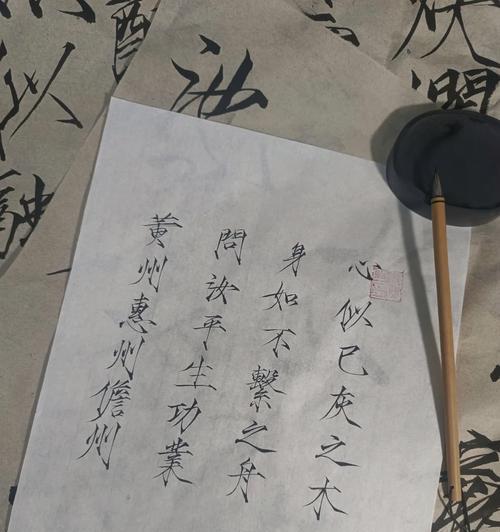 心似已灰之木
身如不繫之舟
問汝平生功業
黃州惠州儋州
汝
似
融